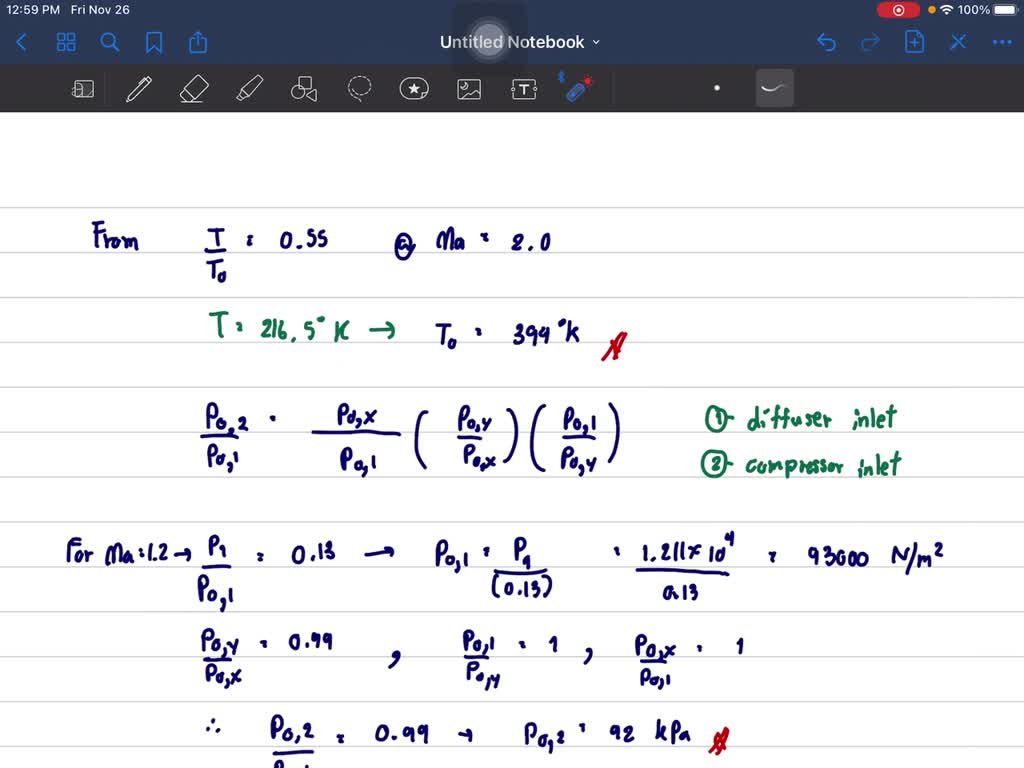 12:59 PM Fri Nov 26
100%
Untitled Notebook
From T/T₀ = 0.55 @ Ma = 2.0
T = 216.5°K → T₀ = 394°K
P₀,₂/P₀,₁ = P₀,x/P₀,₁ (P₀,y/P₀,x)(P₀,₁/P₀,y) ① diffuser inlet
② compressor inlet
For Ma = 1.2 → P₁/P₀,₁ = 0.13 → P₀,₁ = P₁/(0.13) = 1.211 × 10⁴/0.13 = 93000 N/m²
P₀,y/P₀,x = 0.99 , P₀,₁/P₀,y = 1 , P₀,x/P₀,₁ = 1
∴ P₀,₂ = 0.99 → P₀,₂ = 92 kPa